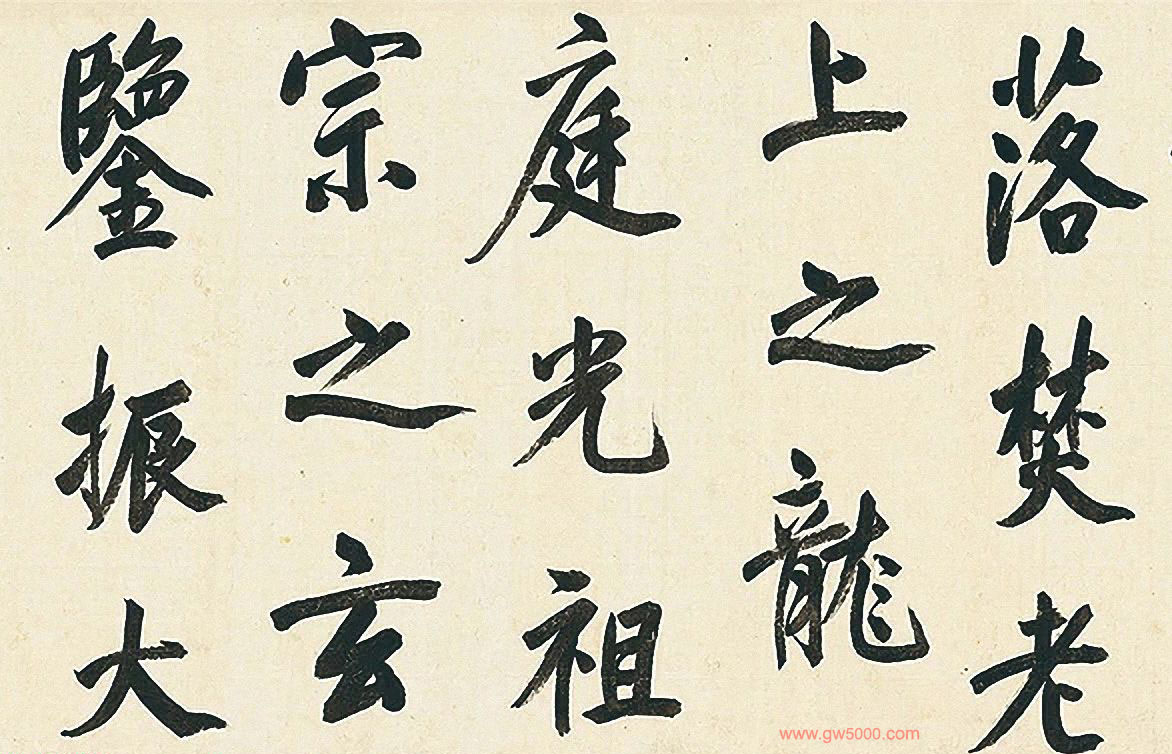 落焚老
上之龍
庭光祖
宗之玄
鑒振大
www.gw5000.com